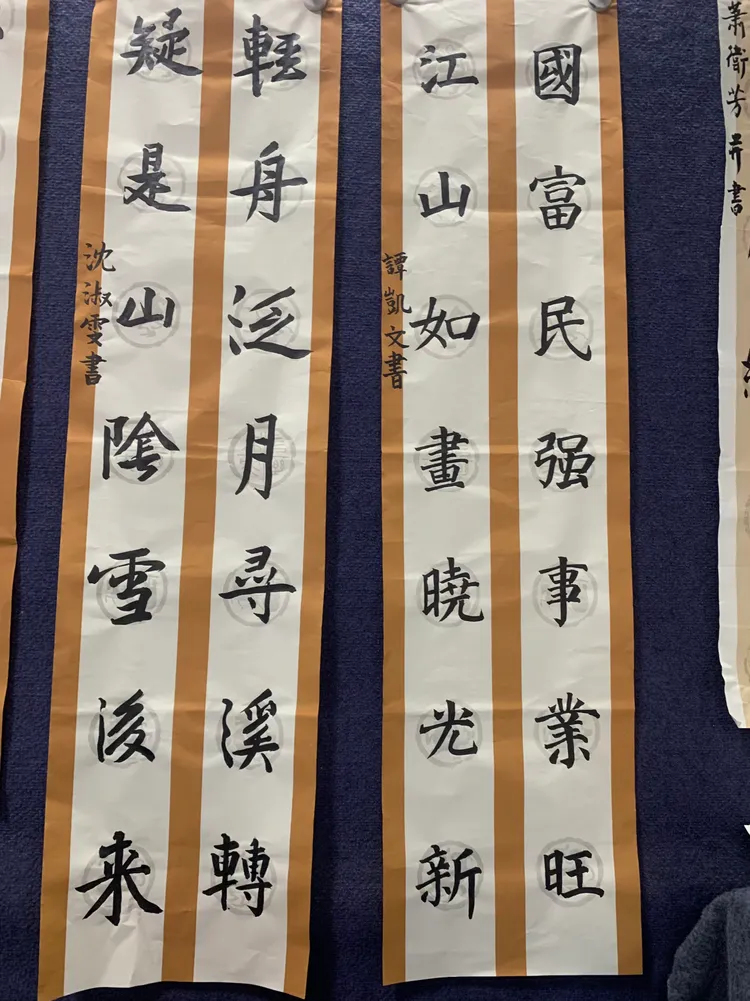 蕭衛芳并書
國富民强事業旺
江山如畫曉光新
譚凱文書
輕舟泛月尋溪轉
疑是山陰雪後来
沈淑雯書